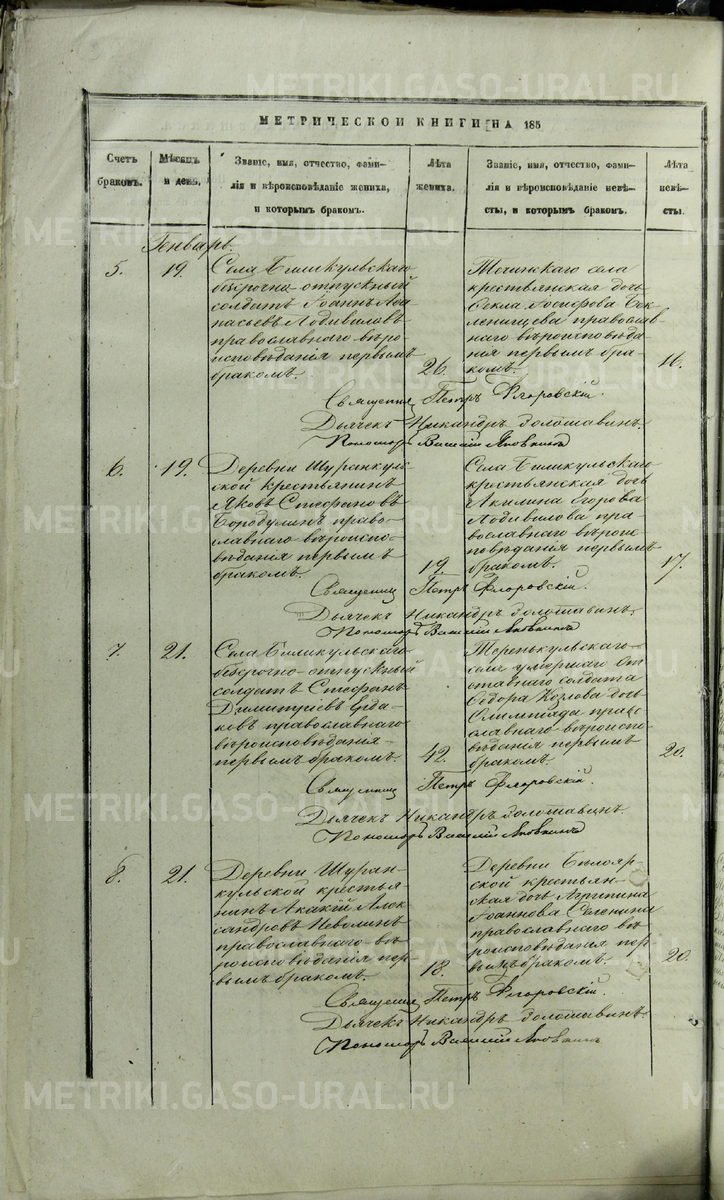 МЕТРИЧЕСКОЙ КНИГИ НА 185
Счетъ браковъ.
Мѣсяцъ и день.
Званіе, имя, отчество, фами-
лія и вѣроисповѣданіе жениха,
и которымъ бракомъ.
Лѣта жениха.
Званіе, имя, отчество, фами-
лія и вѣроисповѣданіе невѣ-
сты, и которымъ бракомъ.
Лѣта невѣ-
сты.
Генварь.
5.
19.
Села Бишкульскаго
безсрочно отпускный
солдатъ Іоаннъ Аѳа
насьевъ
православнаго вѣро
исповѣданія первымъ
бракомъ.
26.
Теченскаго села
крестьянская дочь
Ѳекла Іосифова Бек
ленищева православ
наго вѣроисповѣда
нія первымъ бра
комъ.
16.
Священник Петръ Флоровскій.
Дьячекъ Никандръ Золотавинъ.
Пономарь Василій
6.
19.
Деревни Шуранкуль
ской крестьянинъ
Яковъ Стефановъ
Бородулинъ право-
славнаго вѣроиспо-
вѣданія первымъ
бракомъ.
19.
Села Бишкульскаго
крестьянская дочь
Акилина Егорова
пра
вославнаго вѣроис
повѣданія первымъ
бракомъ.
17.
Священник Петръ Флоровскій.
Дьячекъ Никандръ Золотавинъ.
Пономарь Василій
7.
21.
Села Бишкульскаго
безсрочно-отпускный
солдатъ Стефанъ
Димитріевъ
православнаго
вѣроисповѣданія
первымъ бракомъ.
42.
Теренкульскаго
села умершаго от
ставнаго солдата
Ѳедора Козлова дочь
Олимпіада право
славнаго вѣроиспо
вѣданія первымъ
бракомъ.
20.
Священник Петръ Флоровскій.
Дьячекъ Никандръ Золотавинъ.
Пономарь Василій
8.
21.
Деревни Шуран-
кульской крестья
нинъ Акакій Алек
сандровъ Неволинъ
православнаго вѣ
роисповѣданія пер-
вымъ бракомъ.
18.
Деревни Бѣлояр
ской крестьян
ская дочь Агрипина
Іоаннова
православнаго вѣ
роисповѣданія пер
вымъ бракомъ.
20.
Священник Петръ Флоровскій.
Дьячекъ Никандръ Золотавинъ.
Пономарь Василій
METRIKI.GASO-URAL.RU